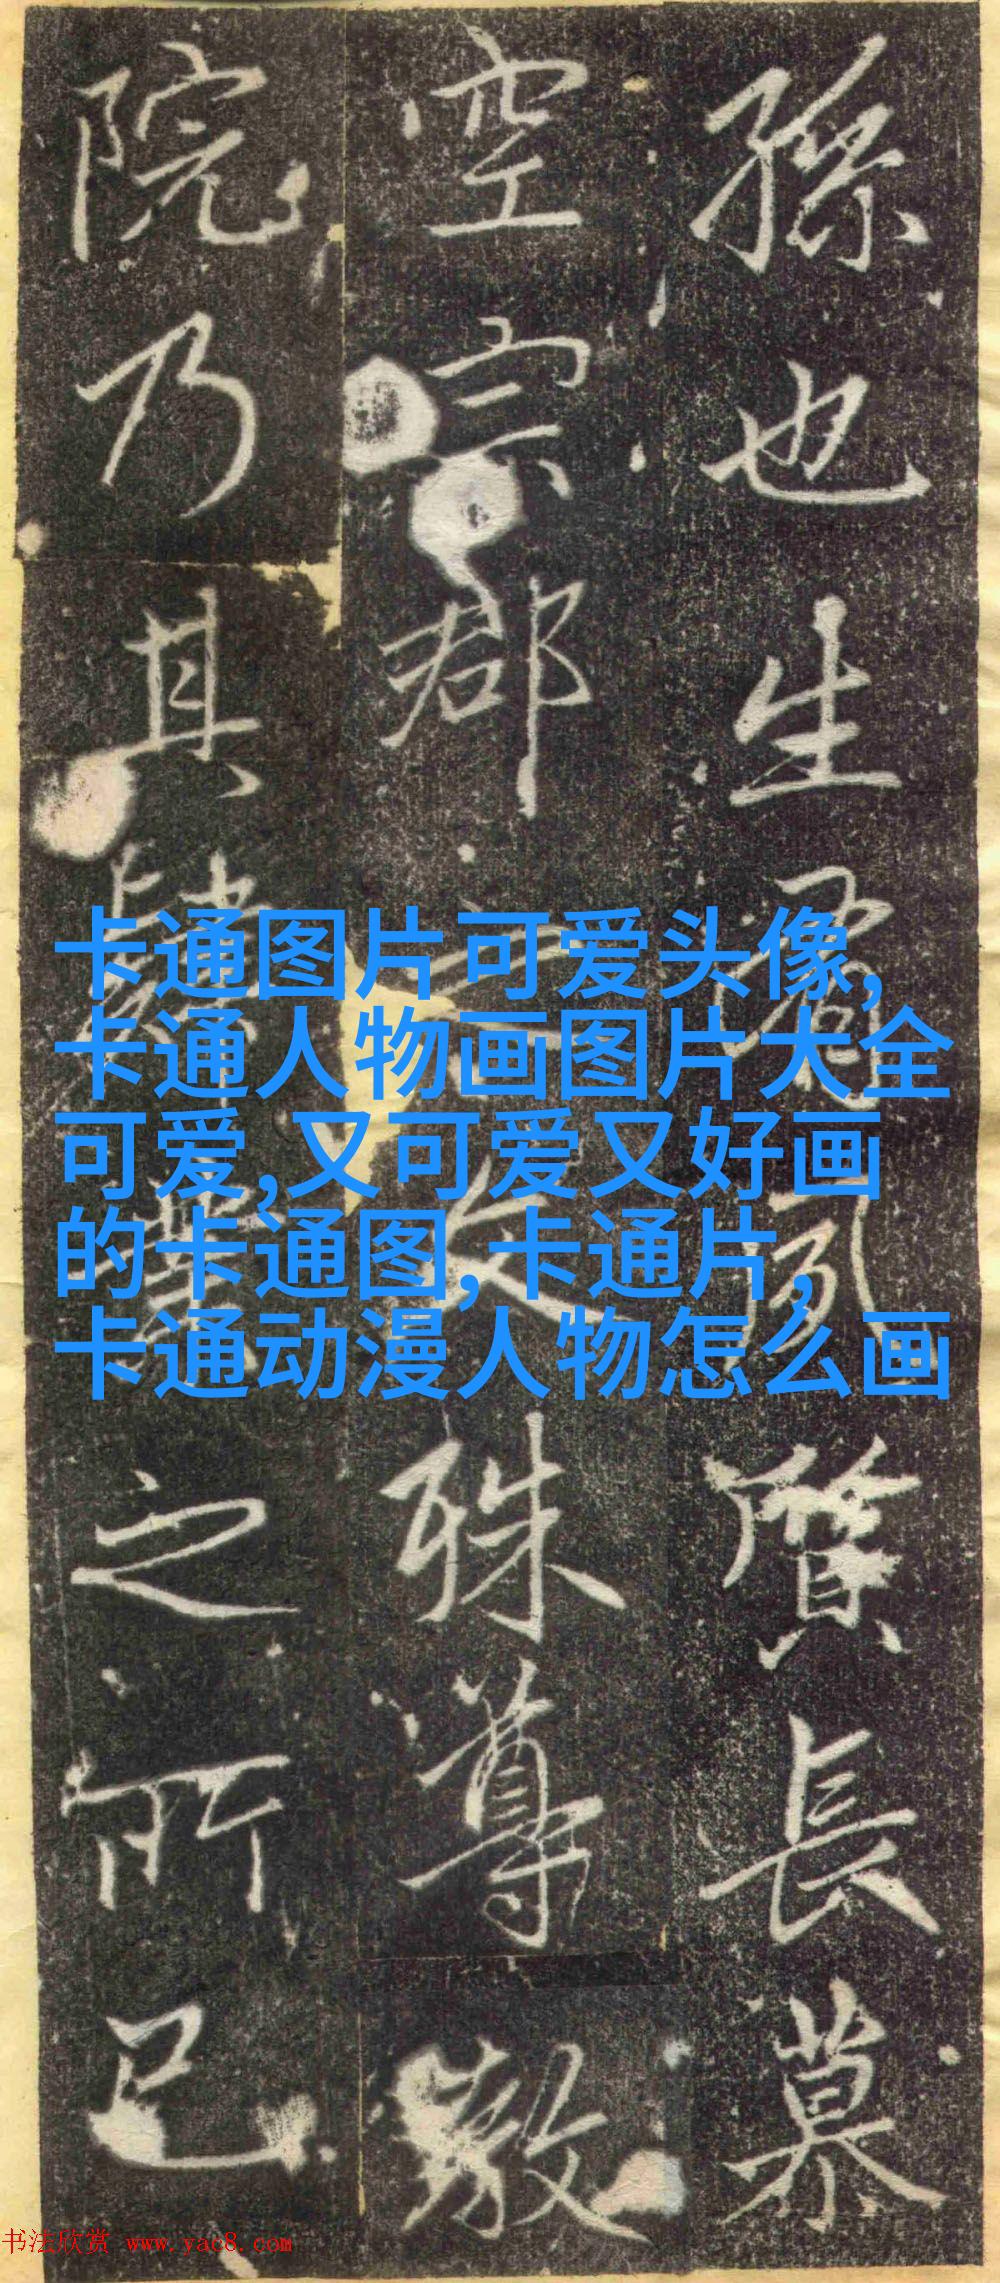 孫也生風質長慕
空宗郡殊尊教
院乃其之所已
卡通图片可爱头像,
卡通人物画图片大全
可爱,又可爱又好画
的卡通图,卡通片,
卡通动漫人物怎么画
书法欣赏 www.yac8.com